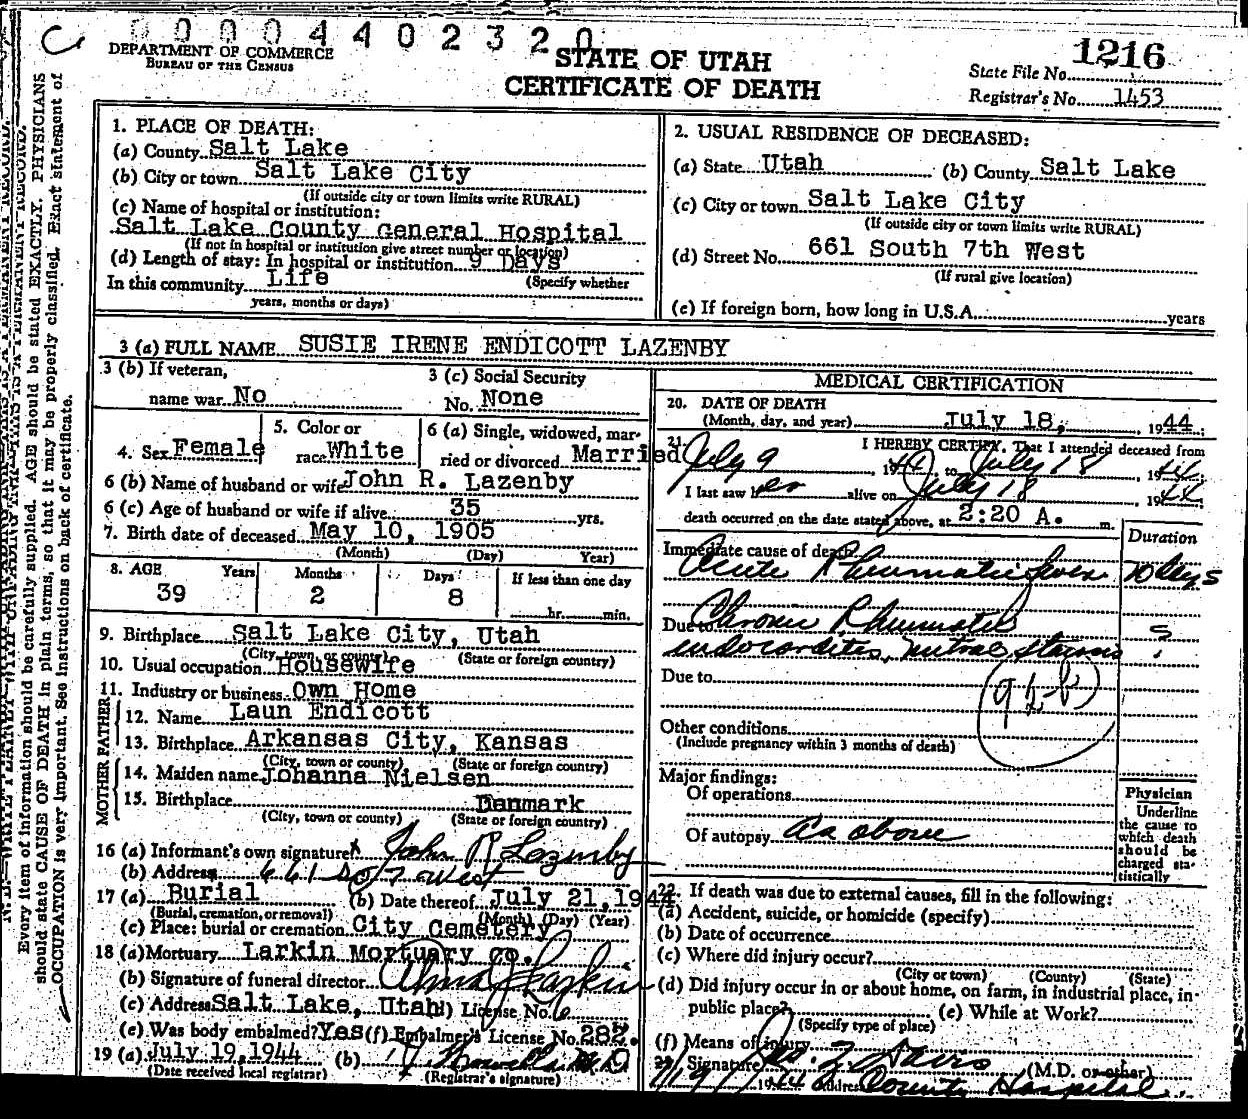 0 0 0 0 4 4 0 2 3 2 0
C
DEPARTMENT OF COMMERCE
BUREAU OF THE CENSUS
STATE OF UTAH
CERTIFICATE OF DEATH
1216
State File No.
Registrar's No. 1453
Every item of information should be carefully supplied. AGE should be stated EXACTLY. PHYSICIANS
should state CAUSE OF DEATH in plain terms, so that it may be properly classified. Exact statement of
OCCUPATION is very important. See instructions on back of certificate.
1. PLACE OF DEATH:
(a) County Salt Lake
(b) City or town Salt Lake City
(If outside city or town limits write RURAL)
(c) Name of hospital or institution:
Salt Lake County General Hospital
(If not in hospital or institution give street number or location)
(d) Length of stay: In hospital or institution 9 Days
(Specify whether
In this community Life
years, months or days)
2. USUAL RESIDENCE OF DECEASED:
(a) State Utah (b) County Salt Lake
(c) City or town Salt Lake City
(If outside city or town limits write RURAL)
(d) Street No. 661 South 7th West
(If rural give location)
(e) If foreign born, how long in U.S.A. years
3 (a) FULL NAME SUSIE IRENE ENDICOTT LAZENBY
3 (b) If veteran,
name war No
3 (c) Social Security
No. None
4. Sex Female
5. Color or
race White
6 (a) Single, widowed, mar-
ried or divorced Married
6 (b) Name of husband or wife John R. Lazenby
6 (c) Age of husband or wife if alive 35 yrs.
7. Birth date of deceased May 10, 1905
(Month) (Day) Year)
8. AGE Years Months Days If less than one day
39 2 8 hr. min.
9. Birthplace Salt Lake City, Utah
(City, town, or county) (State or foreign country)
10. Usual occupation Housewife
11. Industry or business Own Home
FATHER
12. Name Laun Endicott
13. Birthplace Arkansas City, Kansas
(City, town or county) (State or foreign country)
MOTHER
14. Maiden name Johanna Nielsen
15. Birthplace Denmark
(City, town or county) (State or foreign country)
16 (a) Informant's own signature x John R Lazenby
(b) Address 661 So 7 West
17 (a) Burial (b) Date thereof July 21, 1944
(Burial, cremation, or removal) (Month) (Day) (Year)
(c) Place: burial or cremation City Cemetery
18 (a) Mortuary Larkin Mortuary Co.
(b) Signature of funeral director Alma J Larkin
(c) Address Salt Lake, Utah (d) License No. 6
(e) Was body embalmed? Yes (f) Embalmer's License No. 282.
19 (a) July 19, 1944 (b) M D
(Date received local registrar) (Registrar's signature)
MEDICAL CERTIFICATION
20. DATE OF DEATH
(Month, day, and year) July 18, 1944
21. I HEREBY CERTIFY. That I attended deceased from
July 9, 1944, to July 18, 1944
I last saw her alive on July 18, 1944
death occurred on the date stated above, at 2:20 A. m.
Duration
Immediate cause of death
Acute Rheumatic fever 10 days
Due to Chronic Rheumatic ?
endocarditis, mitral stenosis
Due to
Other conditions
(Include pregnancy within 3 months of death)
Major findings:
Of operations
Of autopsy as above
Physician
Underline
the cause to
which death
should be
charged sta-
tistically
22. If death was due to external causes, fill in the following:
(a) Accident, suicide, or homicide (specify)
(b) Date of occurrence
(c) Where did injury occur?
(City or town) (County) (State)
(d) Did injury occur in or about home, on farm, in industrial place, in
public place? (e) While at Work?
(Specify type of place)
(f) Means of injury
23. Signature (M.D. or other)
1944 Address County Hospital